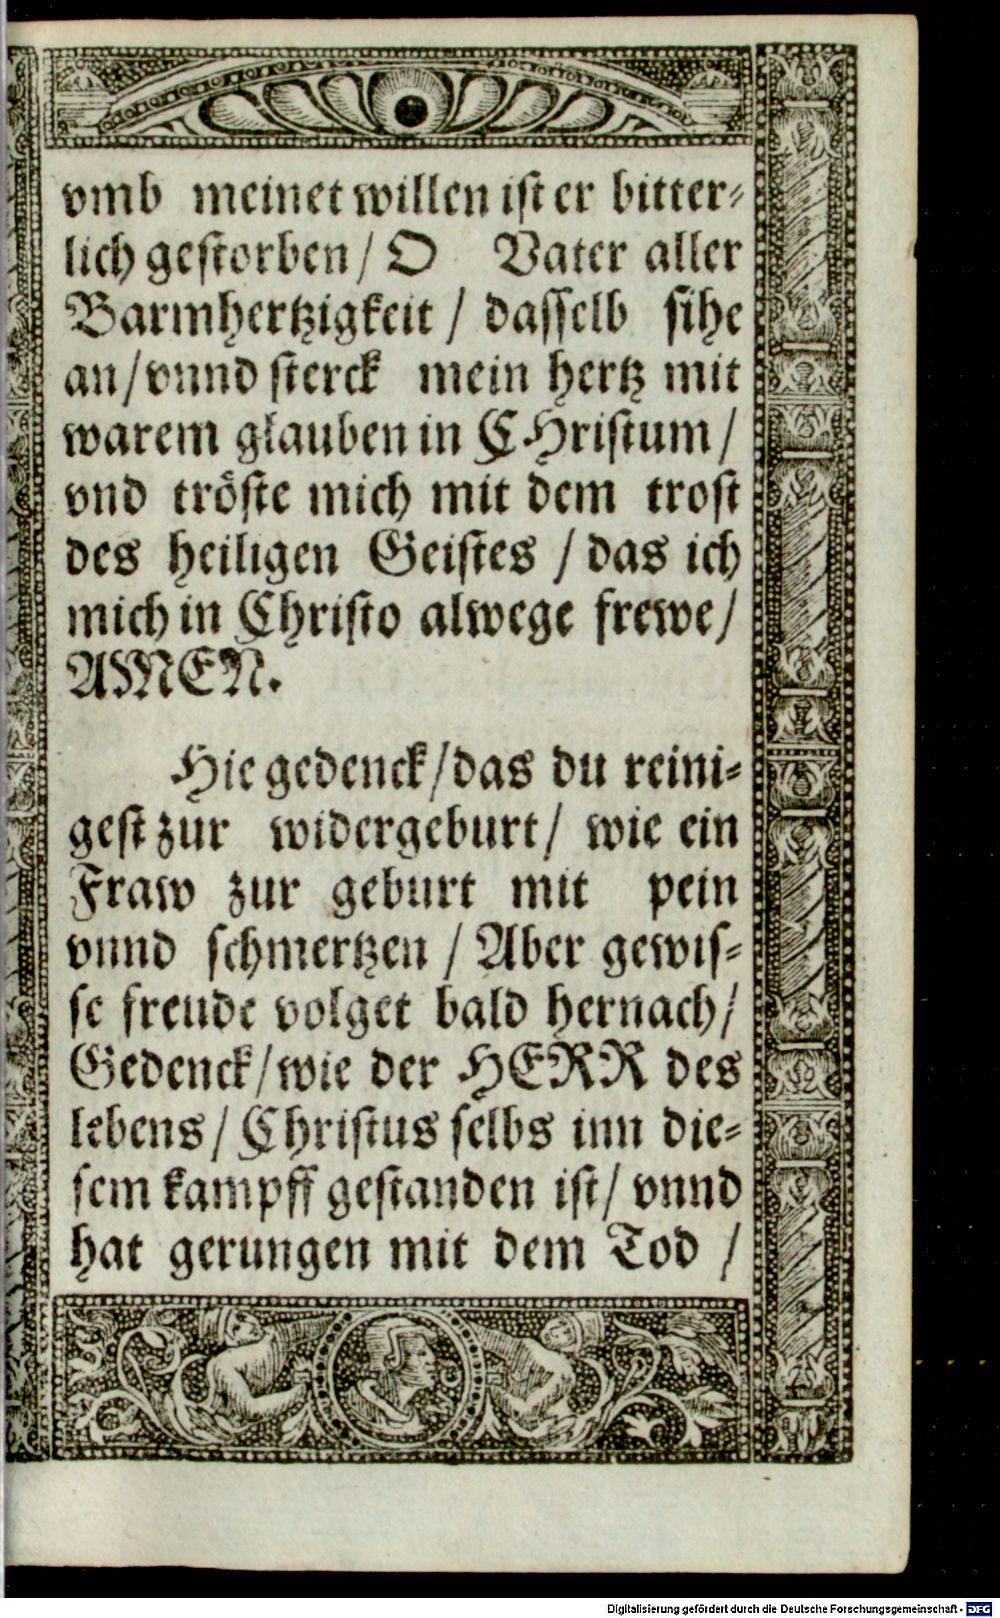 vmb meinet willen ist er bitter⸗
lich gestorben / O Vater aller
Barmhertzigkeit / dasselb sihe
an / vnnd sterck mein hertz mit
warem glauben in CHristum /
vnd tröste mich mit dem trost
des heiligen Geistes / das ich
mich in Christo alwege frewe /
AMEN.
Hie gedenck / das du reini⸗
gest zur widergeburt / wie ein
Fraw zur geburt mit pein
vnnd schmertzen / Aber gewis⸗
se freude volget bald hernach /
Gedenck / wie der HERR des
lebens / Christus selbs inn die⸗
sem kampff gestanden ist / vnnd
hat gerungen mit dem Tod /
Digitalisierung gefördert durch die Deutsche Forschungsgemeinschaft - DFG